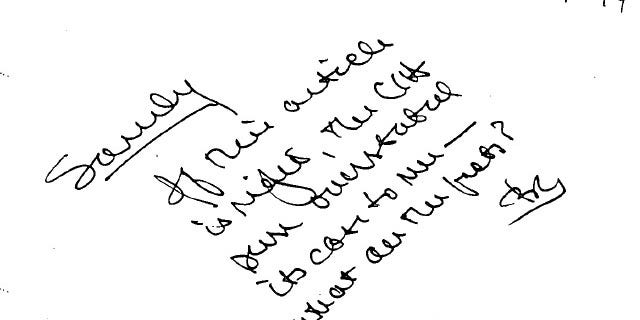 Sandy
If this article
is right, the CIA
sure overstated
its case to me —
what are the facts?